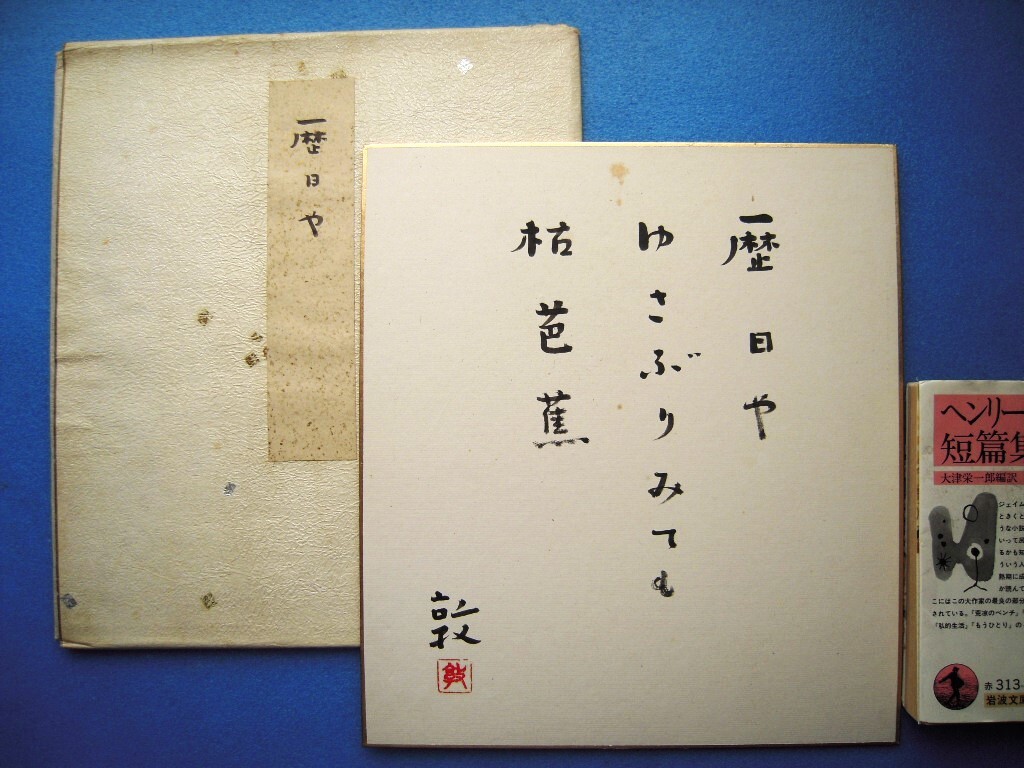 歴日や
歴日や
ゆさぶりみても
枯芭蕉
敦
敦
ヘンリー
短篇集
大津栄一郎編訳
ジェイム
ときくと
うな小説
いって
るかも知
ういう人
熟期に成
が読んで
こにはこの大作家の最良の部分
されている。「荒涼のベンチ」
「私的生活」「もうひとり」の
赤313-
岩波文庫